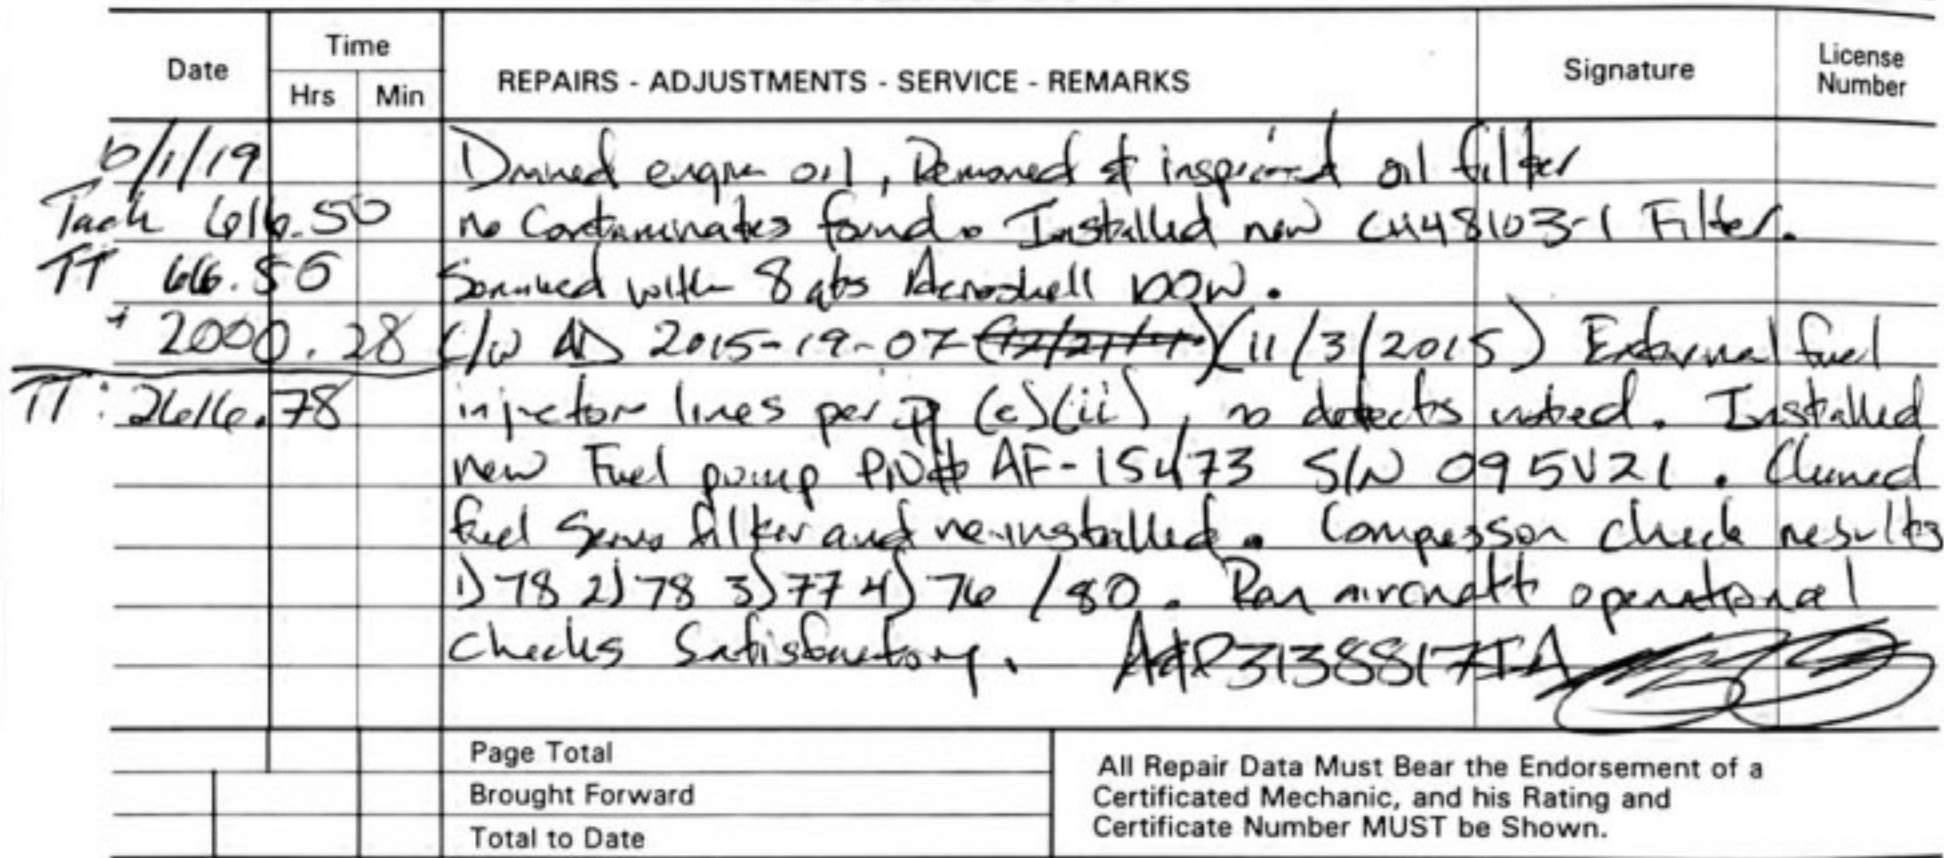 Date
Time
Hrs Min
REPAIRS - ADJUSTMENTS - SERVICE - REMARKS
Signature
License
Number
6/1/19 Drained engine oil, Removed & inspected oil filter
Tach 616.50 no Contaminates found. Installed new CH48103-1 Filter.
TT 616.50 Serviced with 8 qts Aeroshell 100W.
+ 2000.28 C/W AD 2015-19-07 (11/3/2015) External fuel
TT: 2616.78 injector lines per (e)(ii), no defects noted. Installed
new Fuel pump P/N# AF-15473 S/N 095V21. Cleaned
fuel servo filter and re-installed. Compession check results
1) 78 2) 78 3) 77 4) 76 /80. Ran aircraft operational
checks Satisfactory. A&P3138817IA
Page Total
Brought Forward
Total to Date
All Repair Data Must Bear the Endorsement of a
Certificated Mechanic, and his Rating and
Certificate Number MUST be Shown.